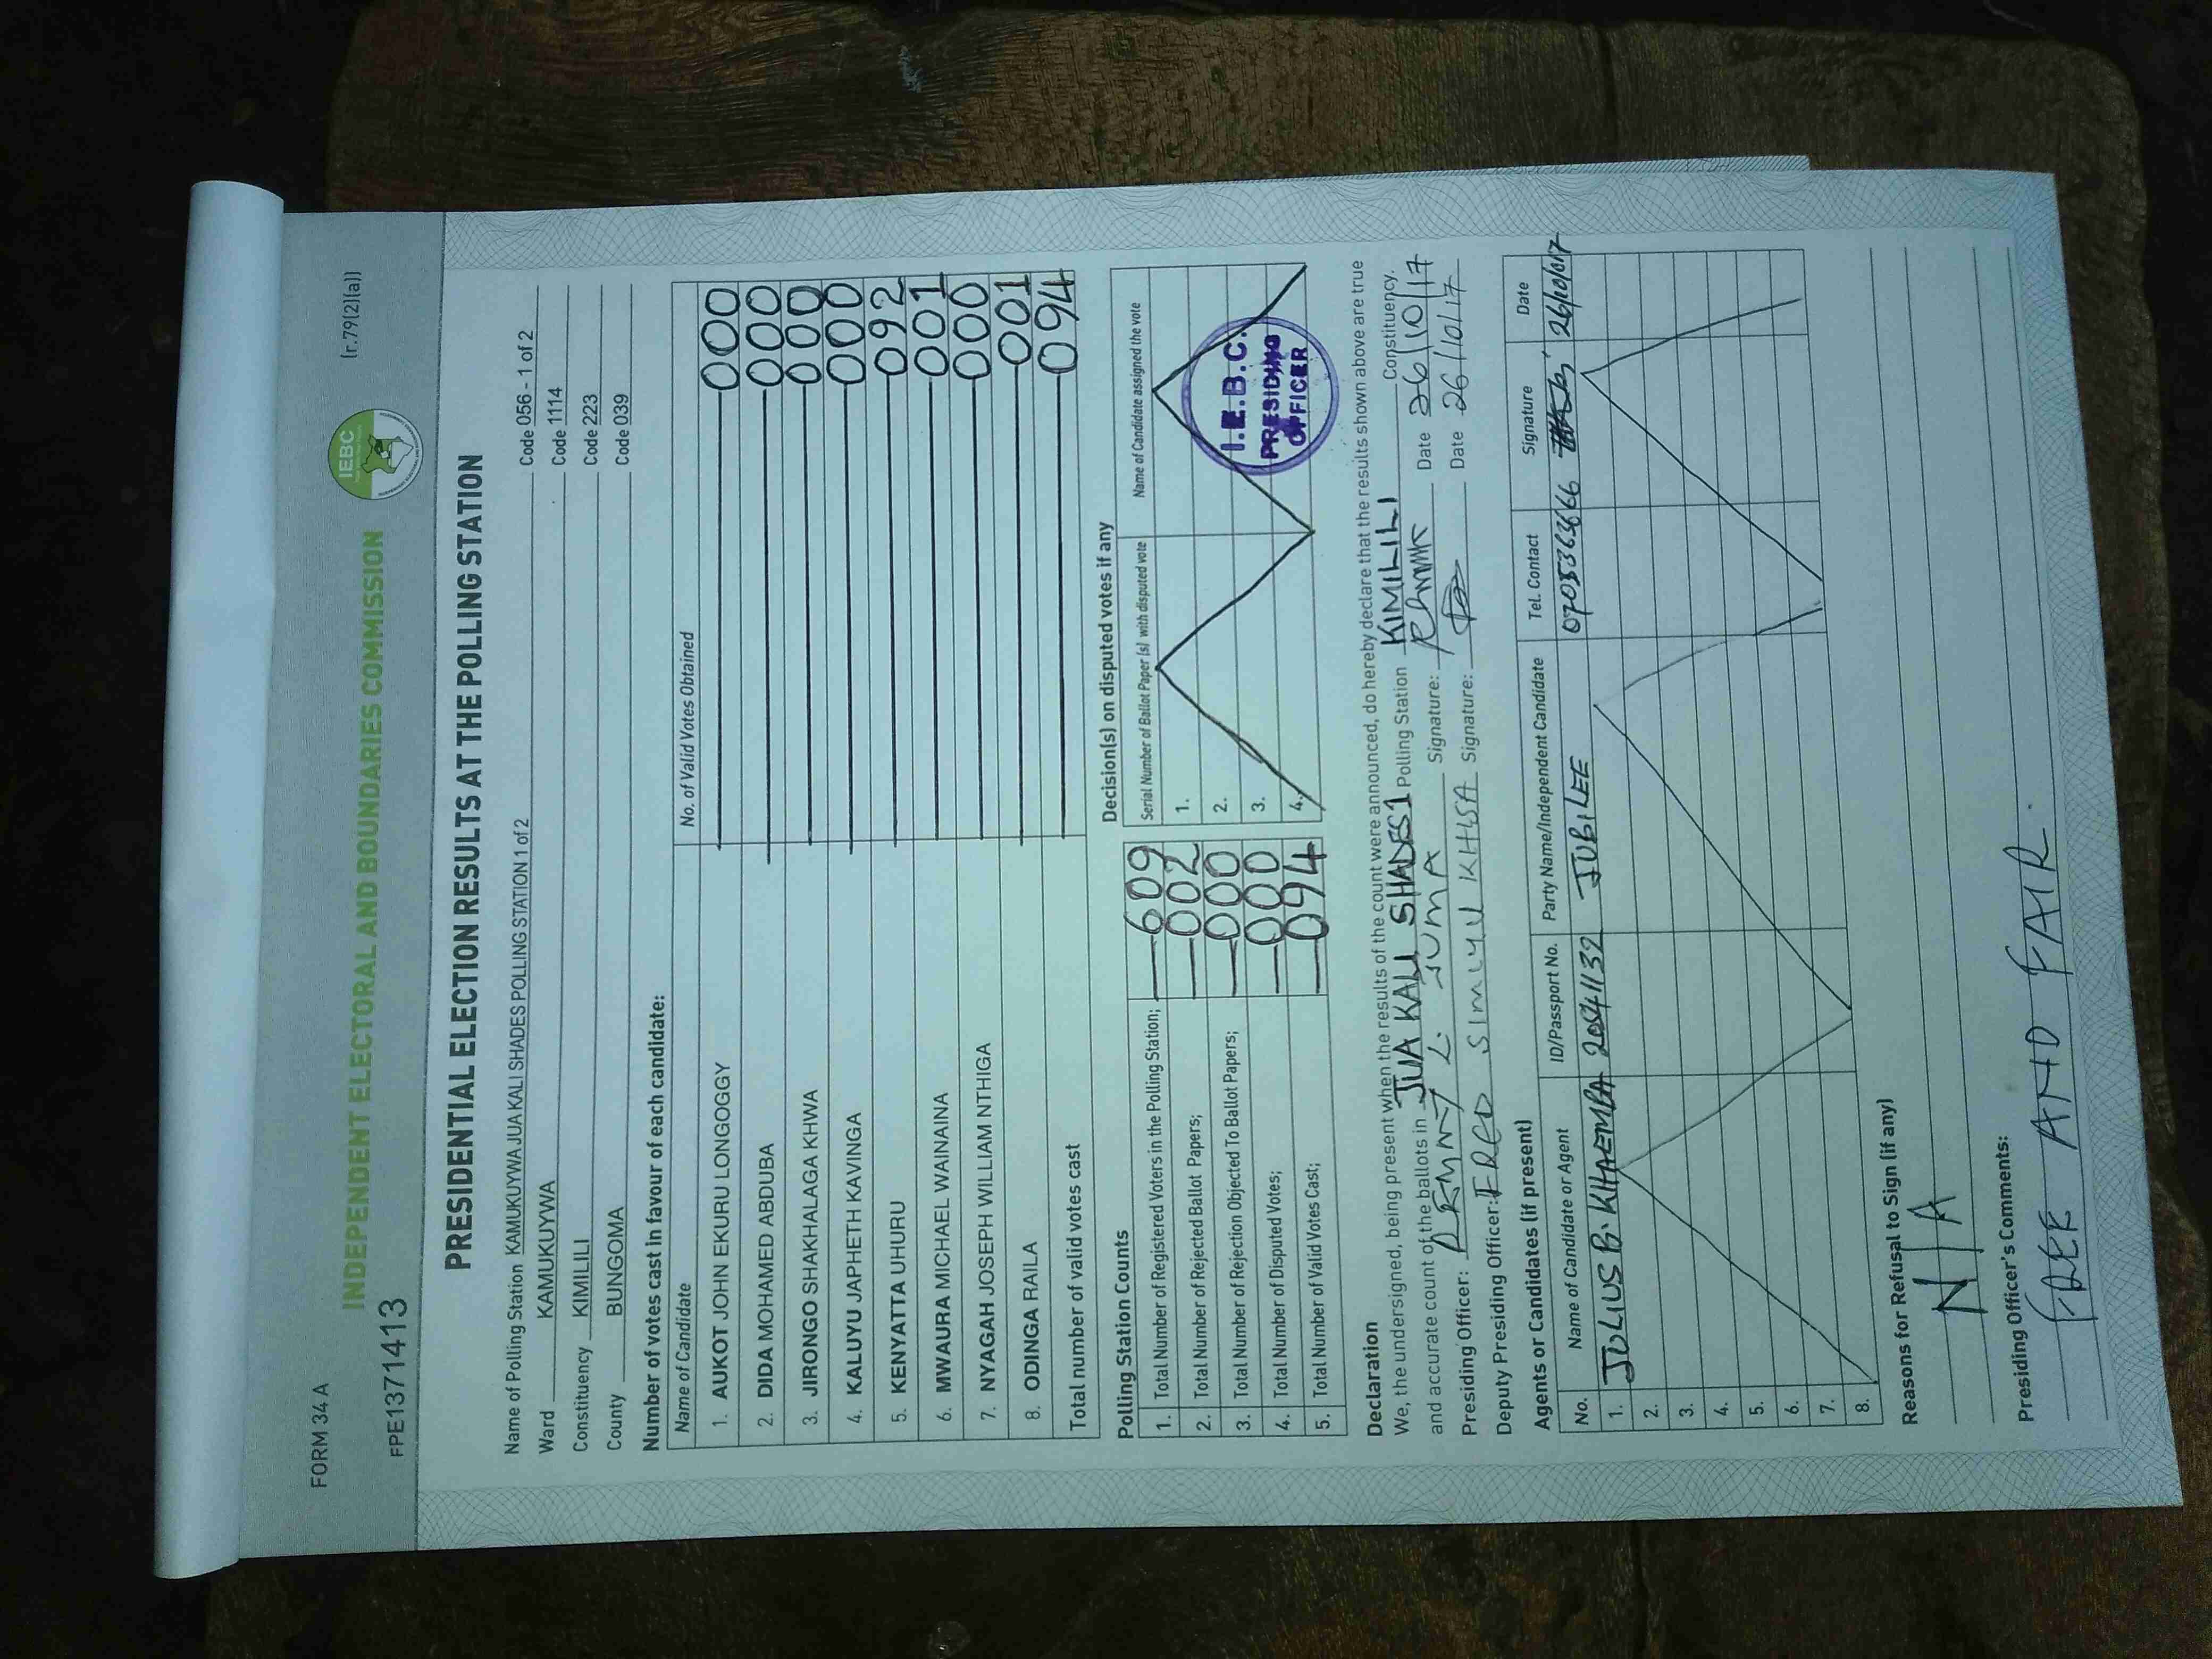 FORM 34 A
(r.79(2)(a))
IEBC
INDEPENDENT ELECTORAL AND BOUNDARIES COMMISSION
FPE13714413
PRESIDENTIAL ELECTION RESULTS AT THE POLLING STATION
Name of Polling Station KAMUKUYWA JUA KALI SHADES POLLING STATION 1 of 2 Code 056 - 1 of 2
Ward KAMUKUYWA Code 1114
Constituency KIMILILI Code 223
County BUNGOMA Code 039
Number of votes cast in favour of each candidate:
Name of Candidate No. of Valid Votes Obtained
1. AUKOT JOHN EKURU LONGOGGY 000
2. DIDA MOHAMED ABDUBA 000
3. JIRONGO SHAKHALAGA KHWA 000
4. KALUYU JAPHETH KAVINGA 000
5. KENYATTA UHURU 092
6. MWAURA MICHAEL WAINAINA 001
7. NYAGAH JOSEPH WILLIAM NTHIGA 000
8. ODINGA RAILA 001
Total number of valid votes cast 094
Polling Station Counts
1. Total Number of Registered Voters in the Polling Station; 609
2. Total Number of Rejected Ballot Papers; 002
3. Total Number of Rejection Objected To Ballot Papers; 000
4. Total Number of Disputed Votes; 000
5. Total Number of Valid Votes Cast; 094
Decision(s) on disputed votes if any
Serial Number of Ballot Paper (s) with disputed vote Name of Candidate assigned the vote
1.
2.
3.
4.
I.E.B.C.
PRESIDING
OFFICER
Declaration
We, the undersigned, being present when the results of the count were announced, do hereby declare that the results shown above are true
and accurate count of the ballots in JUA KALI SHADES 1 Polling Station KIMILILI Constituency.
Presiding Officer: REMMY L. JUMA Signature: Date 26/10/17
Deputy Presiding Officer: FRED SIMIYU KHISA Signature: Date 26/10/17
Agents or Candidates (if present)
No. Name of Candidate or Agent ID/Passport No. Party Name/Independent Candidate Tel. Contact Signature Date
1. JULIUS B. KHAEMBA JUBILEE
2.
3.
4.
5.
6.
7.
8.
Reasons for Refusal to Sign (if any)
N/A
Presiding Officer's Comments:
FREE AND FAIR.